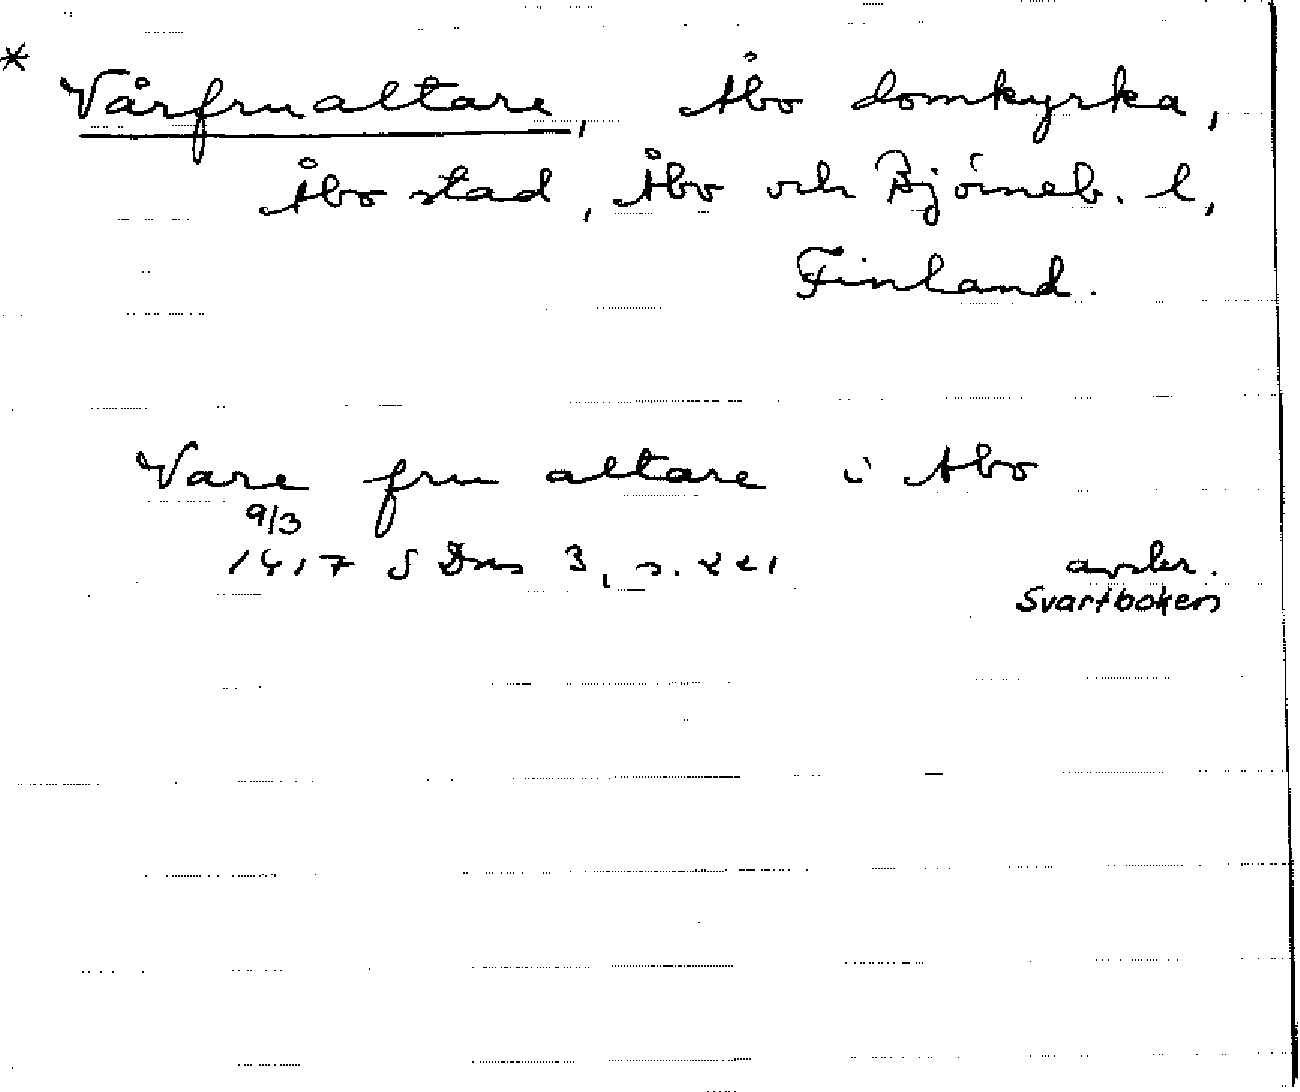 * Vårfrualtare, Åbo domkyrka,
Åbo stad, Åbo och Björneb. l,
Finland.
Vare fru altare i Abo
9/3
1417 S Dns 3, s. 221 avskr.
Svartboken